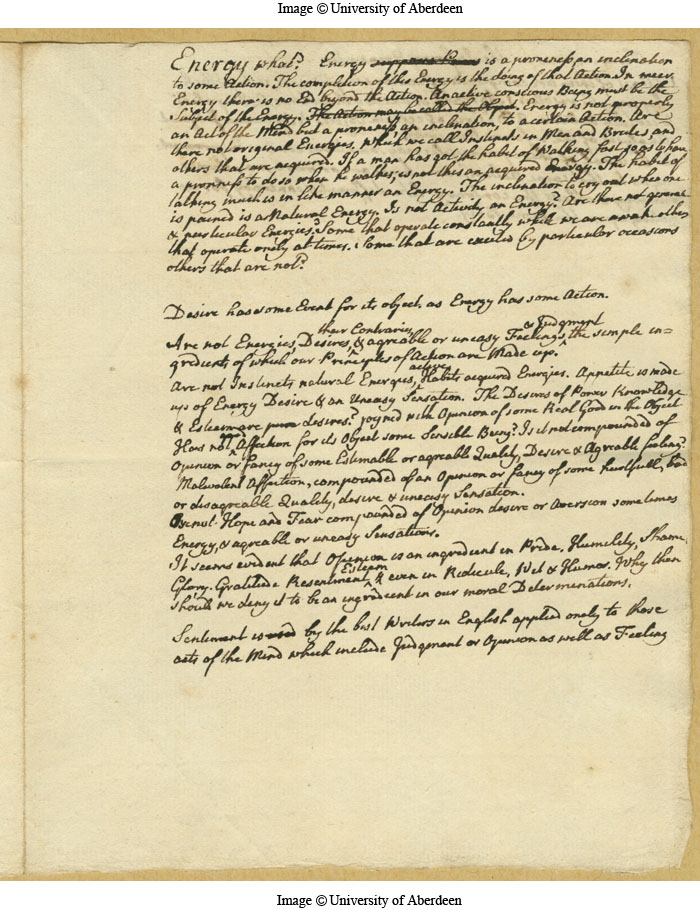 Image © University of Aberdeen
Energy what? Energy suppose Power is a proneness an inclination
to some Action. The completion of this Energy is the doing of that Action. In meer
Energy there is no End beyond the Action. An active conscious Being must be the
Subject of the Energy. The Action may be called the Object. Energy is not properly
an Act of the Mind but a proneness an inclination, to a certain Action. Are
there not original Energies, which we call Instincts in Men and Brutes and
others that are acquired. If a man has got the habit of Walking fast so as to have
a proness to do so when he walks; is not this an acquired Energy. The habit of
talking much is in like manner an Energy. The inclination to cry out when one
is pained is a Natural Energy. Is not Activity an Energy? Are there not general
& particular Energies? Some that operate constantly while we are awake others
that operate onely at times. Some that are excited by particular occasions
others that are not?
Desire has some Event for its object as Energy has some Action.
their Contraries & Judgment
Are not Energies, Desires, & agreable or uneasy Feelings the simple in-
gredients of which our Principles of Action are Made up.
active
Are not Instincts natural Energies, Habits acquired Energies. Appetite is made
up of Energy Desire & an Uneasy Sensation. The Desires of Power Knowledge
& Esteem are pure desires? joyned with Opinion of some Real Good in the Object
Has not Affection for its Object some Sensible Being? Is it not compounded of
Opinion or fancy of some Estimable or agreable Quality, Desire & Agreable feeling?
Malevolent Affection, compounded of an Opinion or fancy of some hurtfull, bad
or disagreable Quality, desire & uneasy Sensation.
not Hope and Fear compounded of Opinion desire or Aversion sometimes
Energy, & agreable or uneasy Sensations.
It seems evident that Opinion is an ingredient in Pride, Humility, Shame,
Esteem
Glory. Gratitude Resentment, & even in Ridicule, Wit & Humor. Why then
should we deny it to be an ingredient in our moral Determinations.
Sentiment is used by the best Writers in English applied onely to those
acts of the Mind which include Judgment or Opinion as well as Feeling
Image © University of Aberdeen